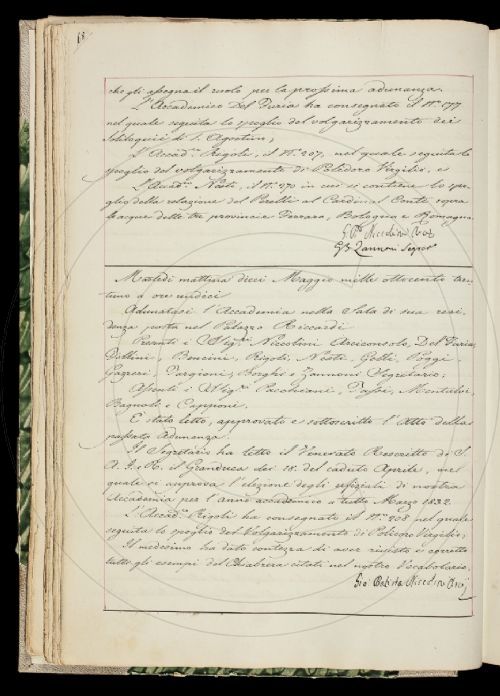 68
che gli assegna il ruolo per la prossima adunanza.
L'Accademico Del Furia ha consegnato il N.° 177
nel quale seguita lo spoglio del volgarizzamento dei
Soliloquii di S. Agostino;
L'Accad.co Rigoli, il N.° 207, nel quale seguita lo
spoglio del volgarizzamento di Polidoro Virgilio, e
L'Accad.co Nesti, il N.° 270 in cui si contiene lo spo-
glio della relazione del al Cardinal Conti sopra
l'acque delle tre provincie Ferrara, Bologna e Romagna
G. B.a Niccolini Arco
G. B. Zannoni Segret.o
Martedì mattina dieci Maggio mille ottocento tren-
tuno a ore undici
Adunatasi l'Accademia nella Sala di sua resi-
denza posta nel Palazzo Riccardi
Presenti i Sig.ri Niccolini Arciconsolo, Del Furia,
Bencini, Rigoli, Nesti, Gelli, Poggi
Gazzeri, Targioni, Borghi e Zannoni Segretario;
Assenti i Sig.ri Tassi,
Bagnoli e Capponi.
E' stato letto, approvato e sottoscritto l'Atto della
passata Adunanza.
Il Segretario ha letto il Venerato Rescritto di S.
A. I. e R. il Granduca dei 18. del caduto Aprile, nel
quale si approva l'elezione degli ufiziali di nostra
Accademia per l'anno accademico a tutto Marzo 1832.
L'Accad.co Rigoli ha consegnato il N.° 208 nel quale
seguita lo spoglio del Volgarizzamento di Polidoro Virgilio;
Il medesimo ha dato contezza di aver rivisto e corretto
tutti gli esempi del Chiabrera citati nel nostro Vocabolario.
Gio: Batista Niccolini Arco